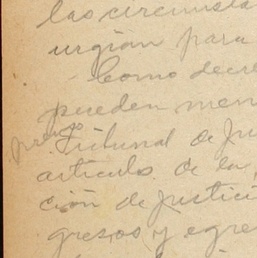 las circunsta
urgían para
Como decre
pueden men
Tribunal de Ju
artículo de la
ción de justici
gresos y egre